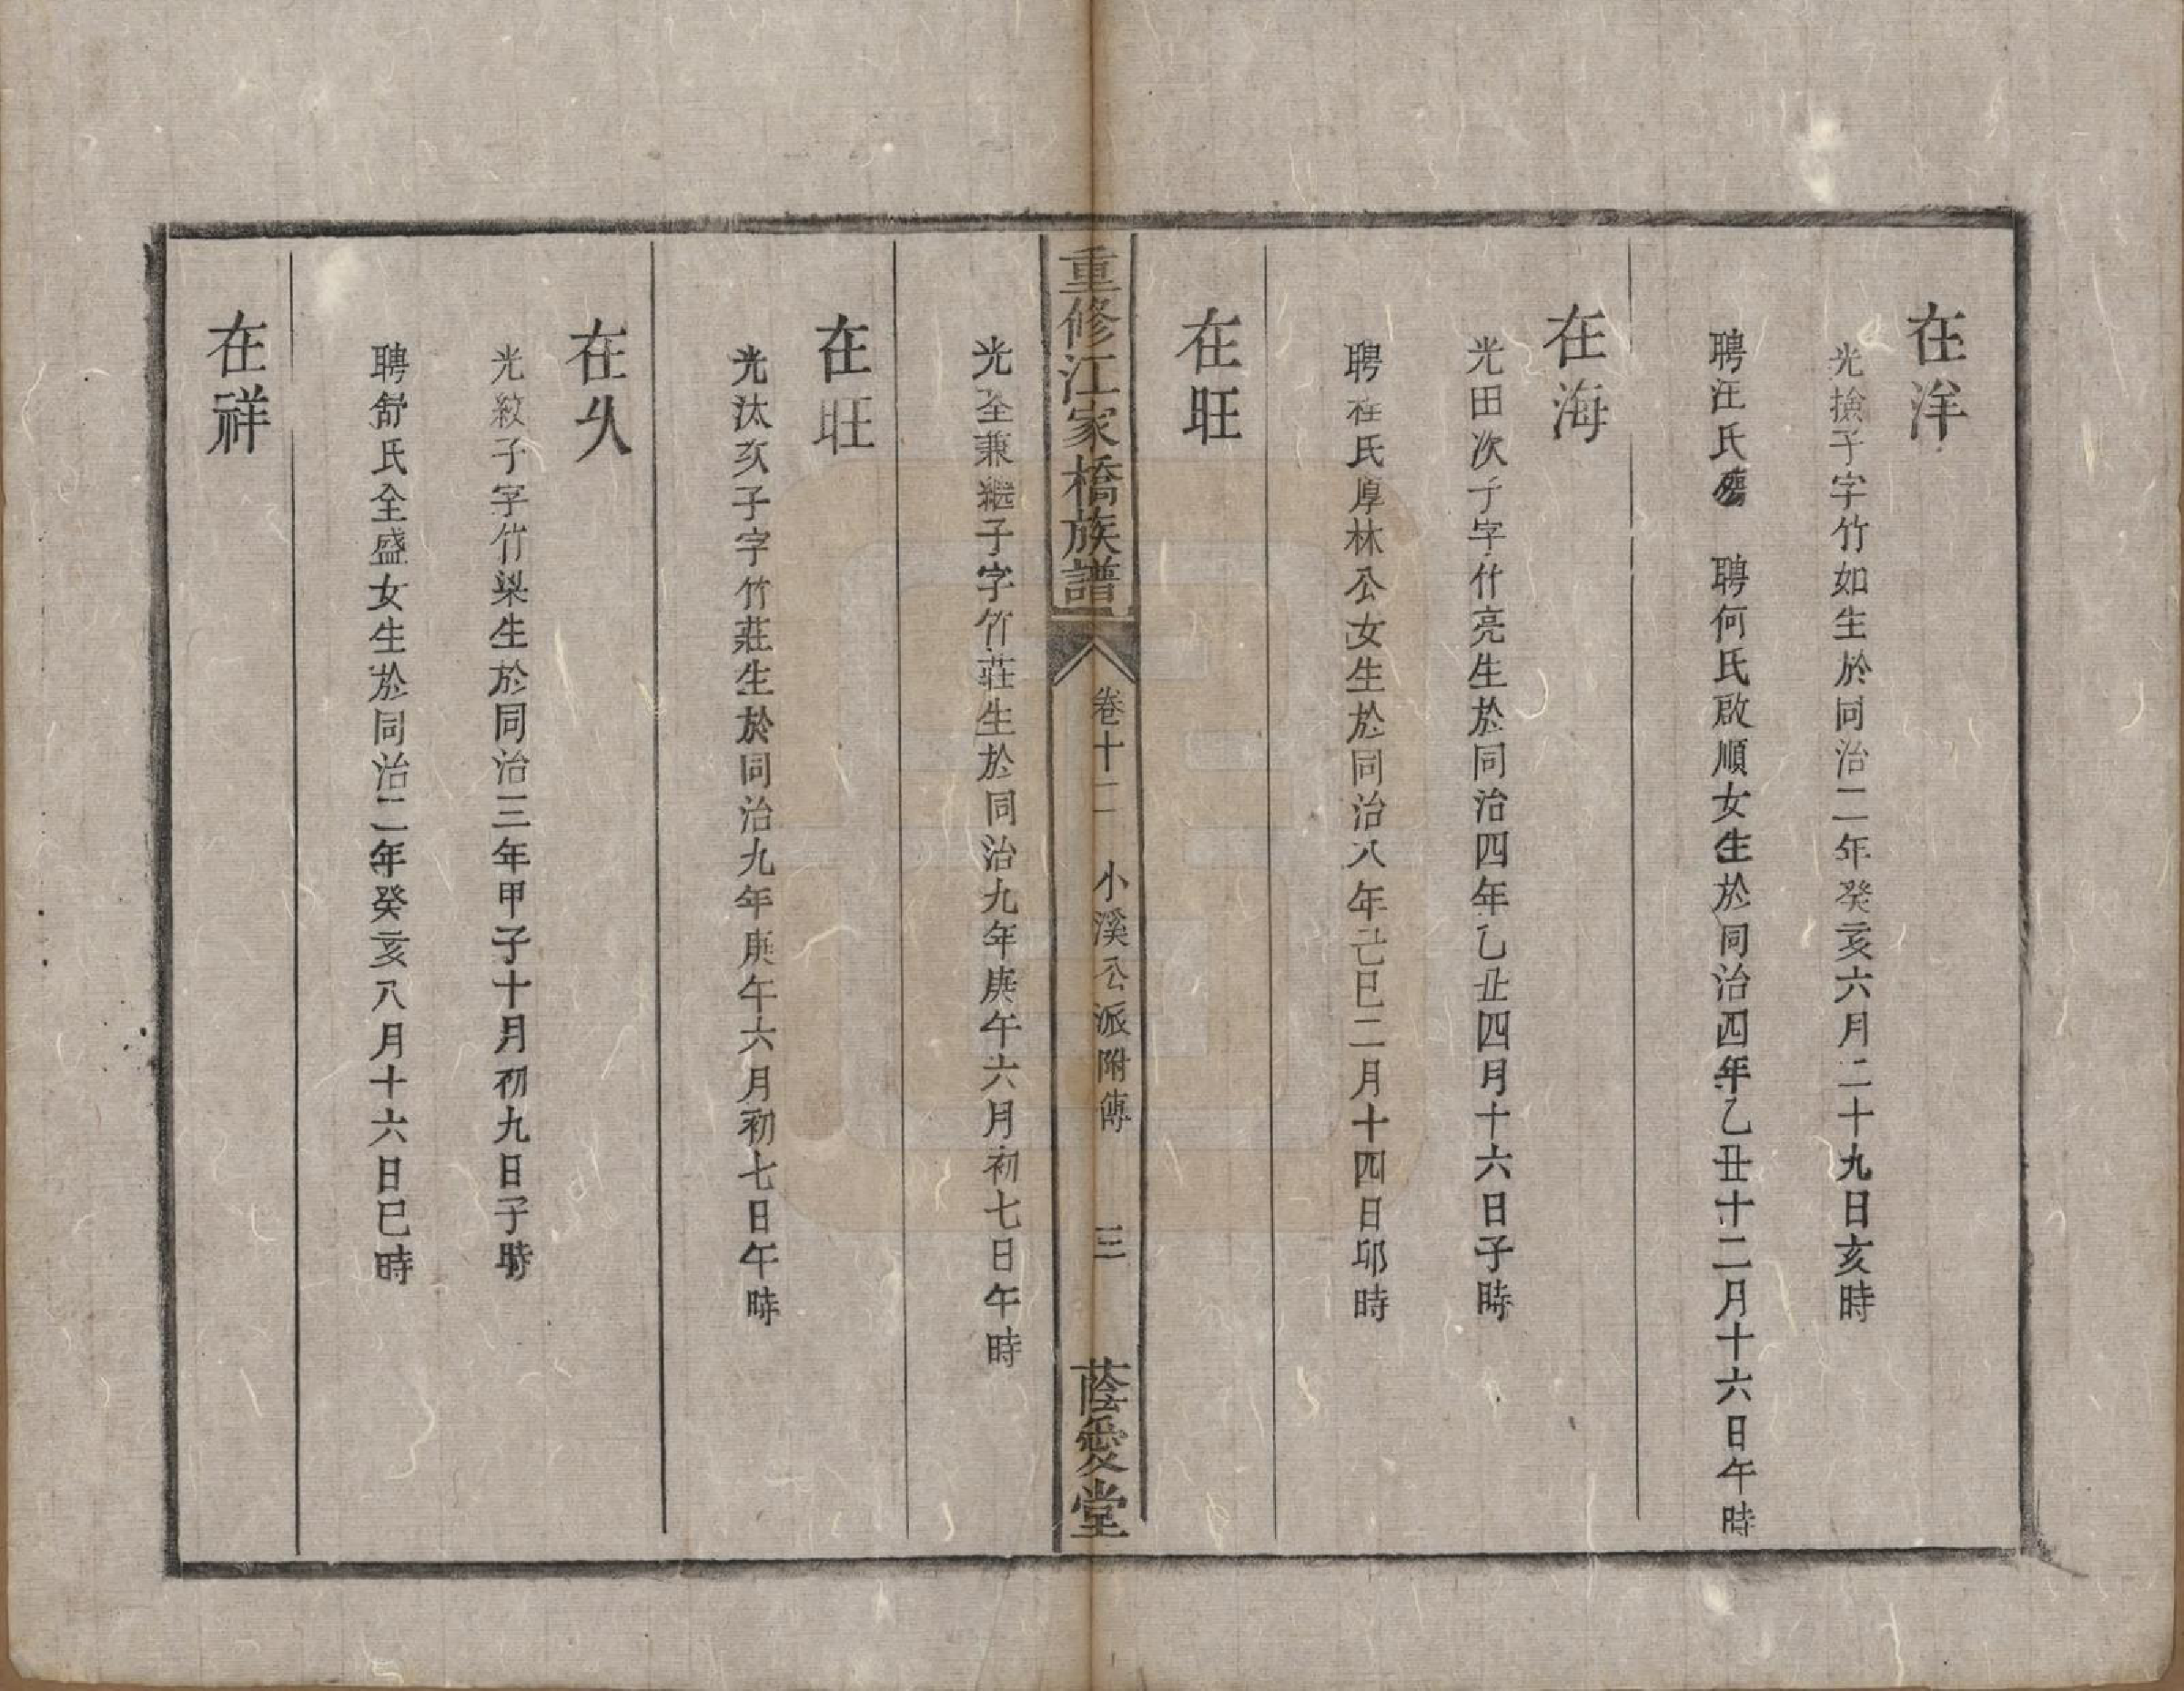 在洋
光撿子字竹如生於同治二年癸亥六月二十九日亥時
聘汪氏殤　聘何氏啟順女生於同治四年乙丑十二月十六日午時
在海
光田次子字竹亮生於同治四年乙丑四月十六日子時
聘程氏厚林公女生於同治八年己巳二月十四日卯時
在旺
重修江家橋族譜　卷十二　小溪公派附傳　三　蔭愛堂
光全兼繼子字竹莊生於同治九年庚午六月初七日午時
在旺
光汰次子字竹莊生於同治九年庚午六月初七日午時
在久
光紋子字竹梁生於同治三年甲子十月初九日子時
聘舒氏全盛女生於同治二年癸亥八月十六日巳時
在祥